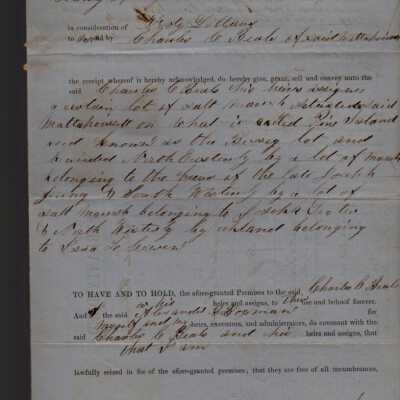 in consideration of Sixty Dollars
to me paid by Charles C Beals of said Mattapoisett
the receipt whereof is hereby acknowledged, do hereby give, grant, sell and convey unto the
said Charles C Beals his heirs assigns
a certain lot of Salt Marsh Situated in said
Mattapoisett on what is called Pine Island
and known as the lot and
bounded North Easterly by a lot of Marsh
belonging to the heirs of the late Joseph
South Westerly by a lot of
Salt Marsh belonging to
& North Westerly by upland belonging
to
TO HAVE AND TO HOLD, the afore-granted Premises to the said Charles C Beals
his heirs and assigns, to their use and behoof forever.
And I the said for
myself and my heirs, executors, and administrators, do covenant with the
said Charles C Beals and his heirs and assigns, that
that I am
lawfully seized in fee of the afore-granted premises; that they are free of all incumbrances,